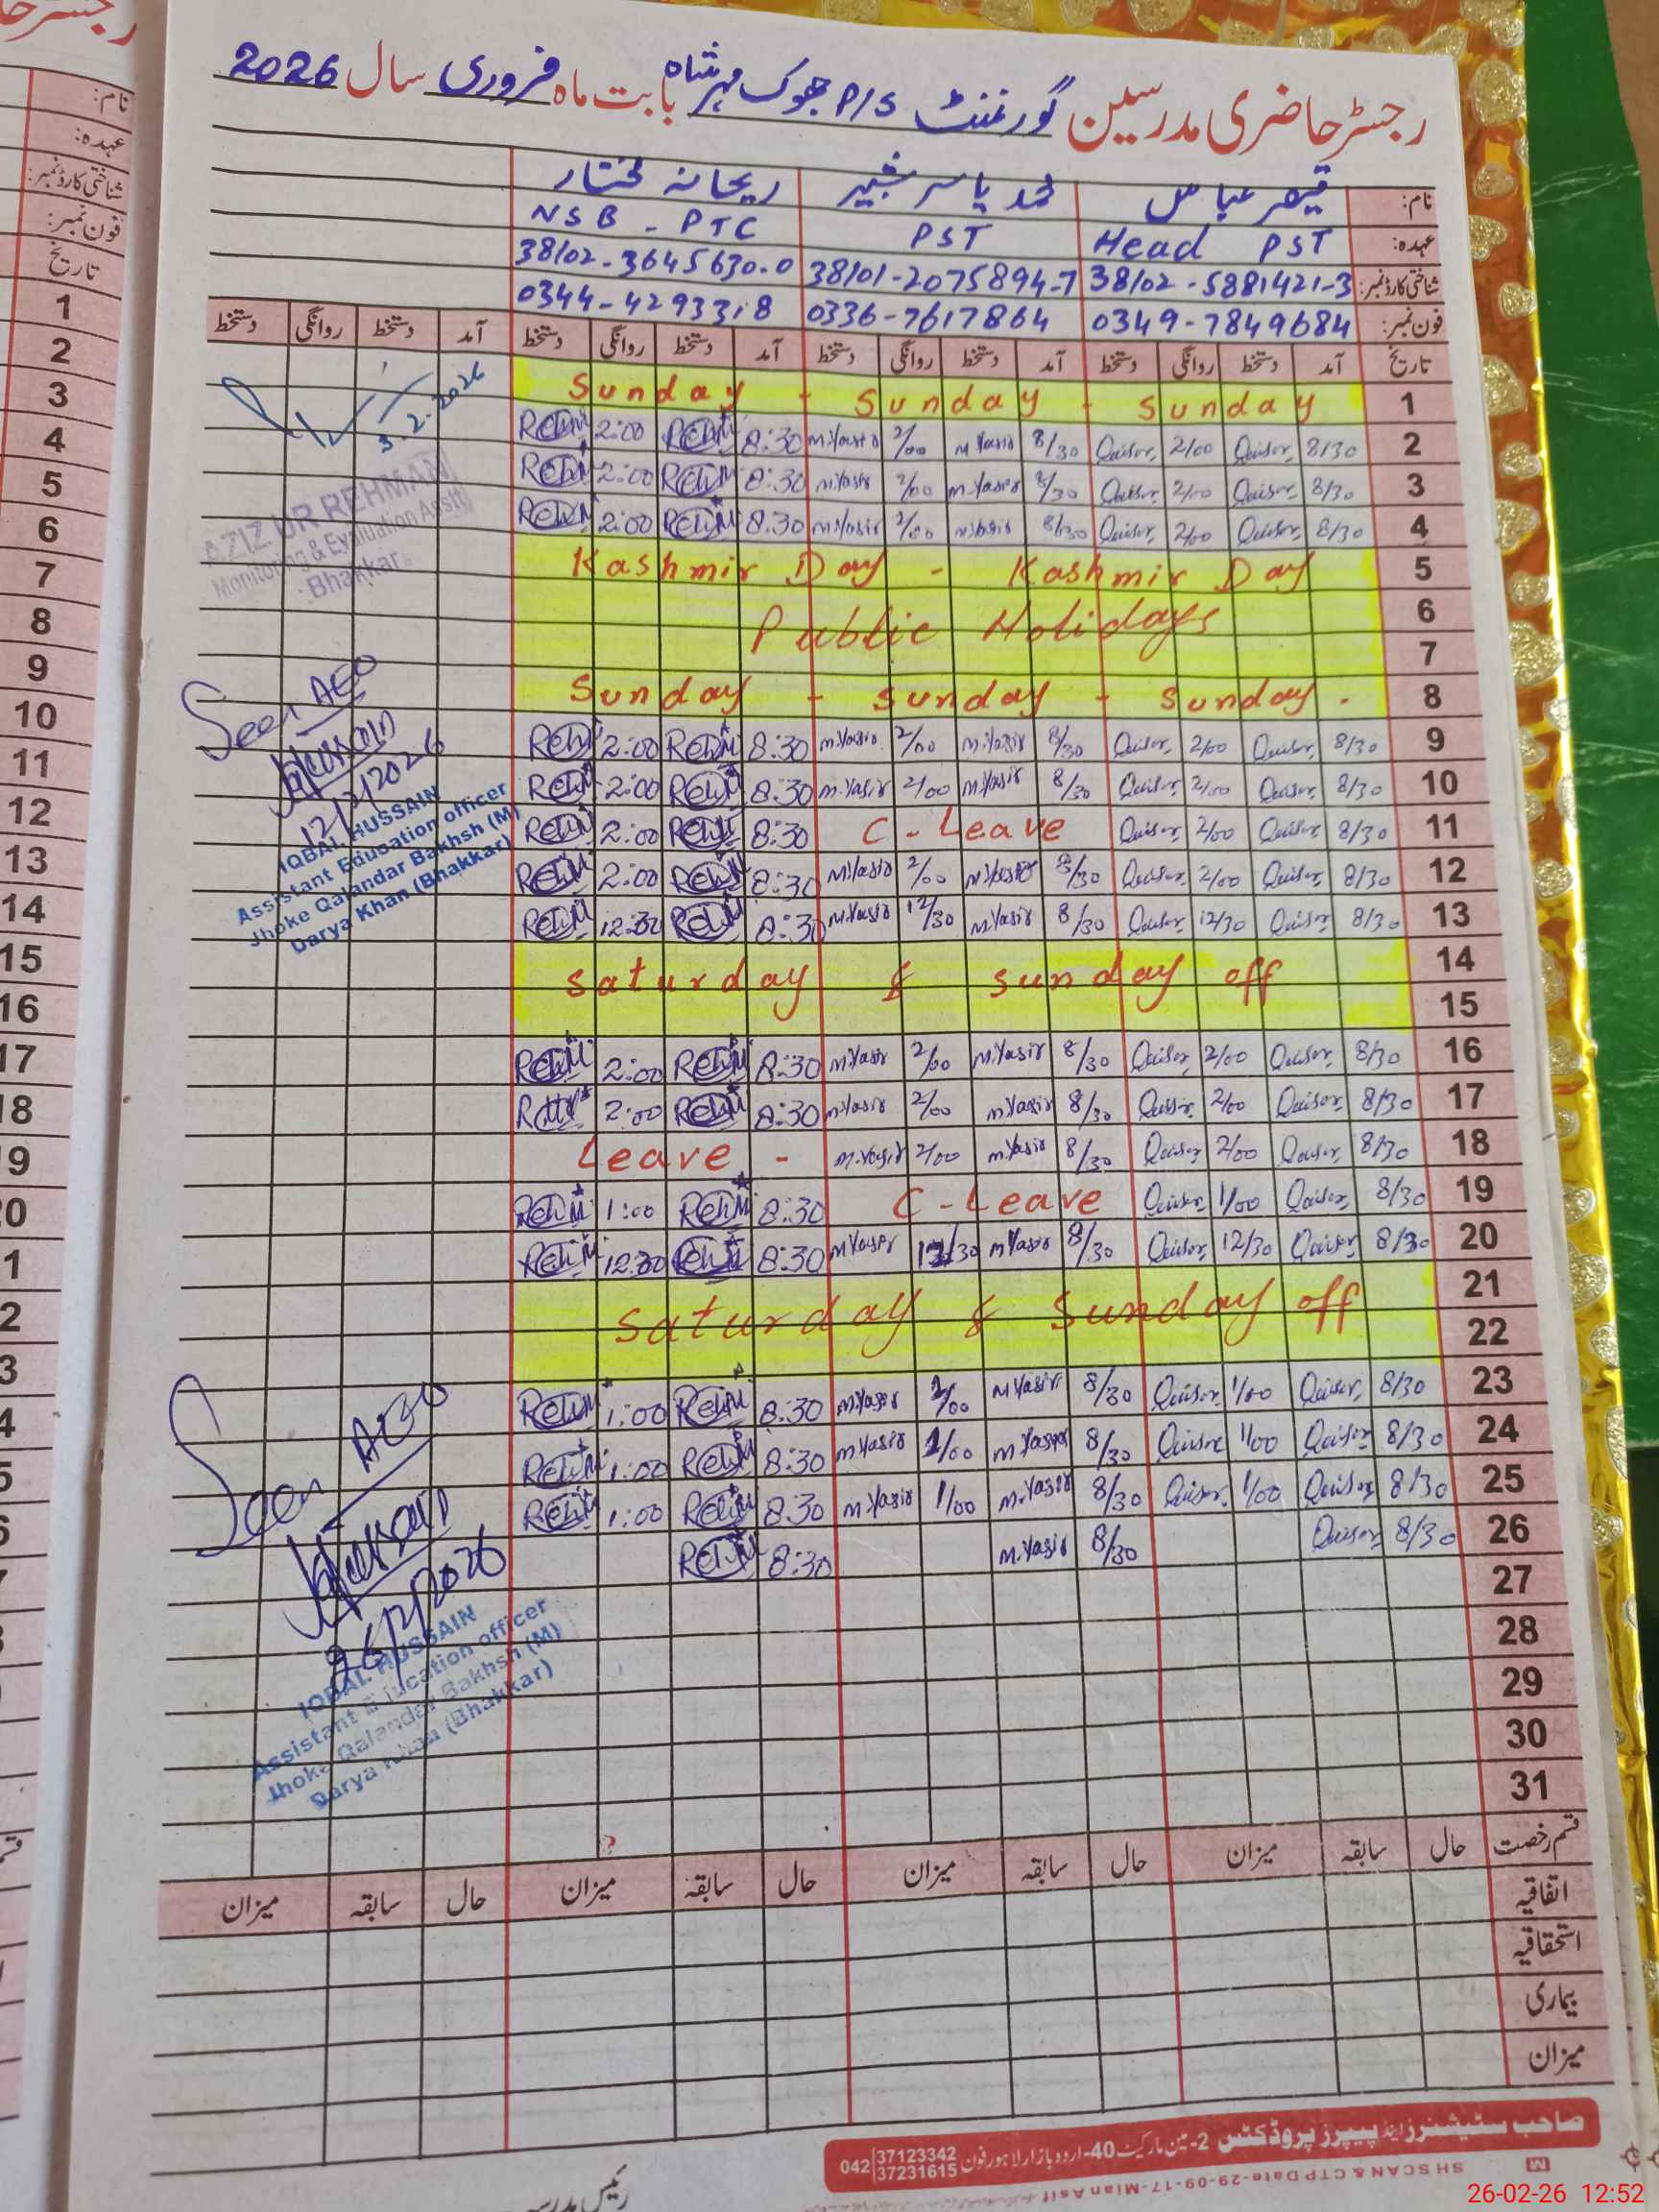 رجسٹر حاضری مدرسین گورنمنٹ P/S جھوک مہر شاہ بابت ماہ فروری سال 2026
نام: قیصر عباس محمد یاسر شبیر ریحانہ مختار
عہدہ: Head PST PST NSB - PTC
شناختی کارڈ نمبر: 38102-5881421-3 38101-2075894-7 38102-3645630-0
فون نمبر: 0349-7849684 0336-7617864 0344-4293318
تاریخ آمد دستخط روانگی دستخط آمد دستخط روانگی دستخط آمد دستخط روانگی دستخط آمد دستخط روانگی دستخط
1 Sunday - Sunday - Sunday
2 8/30 Qaiser 2/00 Qaiser 8/30 M.Yasir 2/00 M.Yasir 8:30 2:00
3 8/30 Qaiser 2/00 Qaiser 8/30 M.Yasir 2/00 M.Yasir 8:30 2:00
4 8/30 Qaiser 2/00 Qaiser 8/30 M.Yasir 2/00 M.Yasir 8:30 2:00
5 Kashmir Day - Kashmir Day
6 Public Holidays
7
8 Sunday - Sunday - Sunday -
9 8/30 Qaiser 2/00 Qaiser 8/30 M.Yasir 2/00 M.Yasir 8:30 2:00
10 8/30 Qaiser 2/00 Qaiser 8/30 M.Yasir 2/00 M.Yasir 8:30 2:00
11 8/30 Qaiser 2/00 Qaiser C-Leave 8:30 2:00
12 8/30 Qaiser 2/00 Qaiser 8/30 M.Yasir 2/00 M.Yasir 8:30 2:00
13 8/30 Qaiser 12/30 Qaiser 8/30 M.Yasir 12/30 M.Yasir 8:30 12:30
14 Saturday & Sunday off
15
16 8/30 Qaiser 2/00 Qaiser 8/30 M.Yasir 2/00 M.Yasir 8:30 2:00
17 8/30 Qaiser 2/00 Qaiser 8/30 M.Yasir 2/00 M.Yasir 8:30 2:00
18 8/30 Qaiser 2/00 Qaiser 8/30 M.Yasir 2/00 M.Yasir Leave -
19 8/30 Qaiser 1/00 Qaiser C-Leave 8:30 1:00
20 8/30 Qaiser 12/30 Qaiser 8/30 M.Yasir 12/30 M.Yasir 8:30 12:30
21 Saturday & Sunday off
22
23 8/30 Qaiser 1/00 Qaiser 8/30 M.Yasir 1/00 M.Yasir 8:30 1:00
24 8/30 Qaiser 1/00 Qaiser 8/30 M.Yasir 1/00 M.Yasir 8:30 1:00
25 8/30 Qaiser 1/00 Qaiser 8/30 M.Yasir 1/00 M.Yasir 8:30 1:00
26 8/30 Qaiser 8/30 M.Yasir 8:30
27
28
29
30
31
قسم رخصت حال سابقہ میزان حال سابقہ میزان حال سابقہ میزان حال سابقہ میزان
اتفاقیہ
استحقاقیہ
بیماری
میزان
3-2-2026
AZIZ UR REHMAN
Monitoring & Evaluation Asstt
Bhakkar
Seen AEO
12/2/2026
IQBAL HUSSAIN
Assistant Education officer
Jhoke Qalandar Bakhsh (M)
Darya Khan (Bhakkar)
Seen AEO
26/2/2026
IQBAL HUSSAIN
Assistant Education officer
Jhoke Qalandar Bakhsh (M)
Darya Khan (Bhakkar)
صاحب سٹیشنرز اینڈ پیپرز پروڈکٹس 2-مین مارکیٹ 40-اردو بازار لاہور فون 042 37123342
37231615
SH SCAN & CTP Date-29-09-17-Mian Asif
رجسٹر حا
نام:
عہدہ:
شناختی کارڈ نمبر:
فون نمبر:
تاریخ
1
2
3
4
5
6
7
8
9
10
11
12
13
14
15
16
17
18
26-02-26 12:52